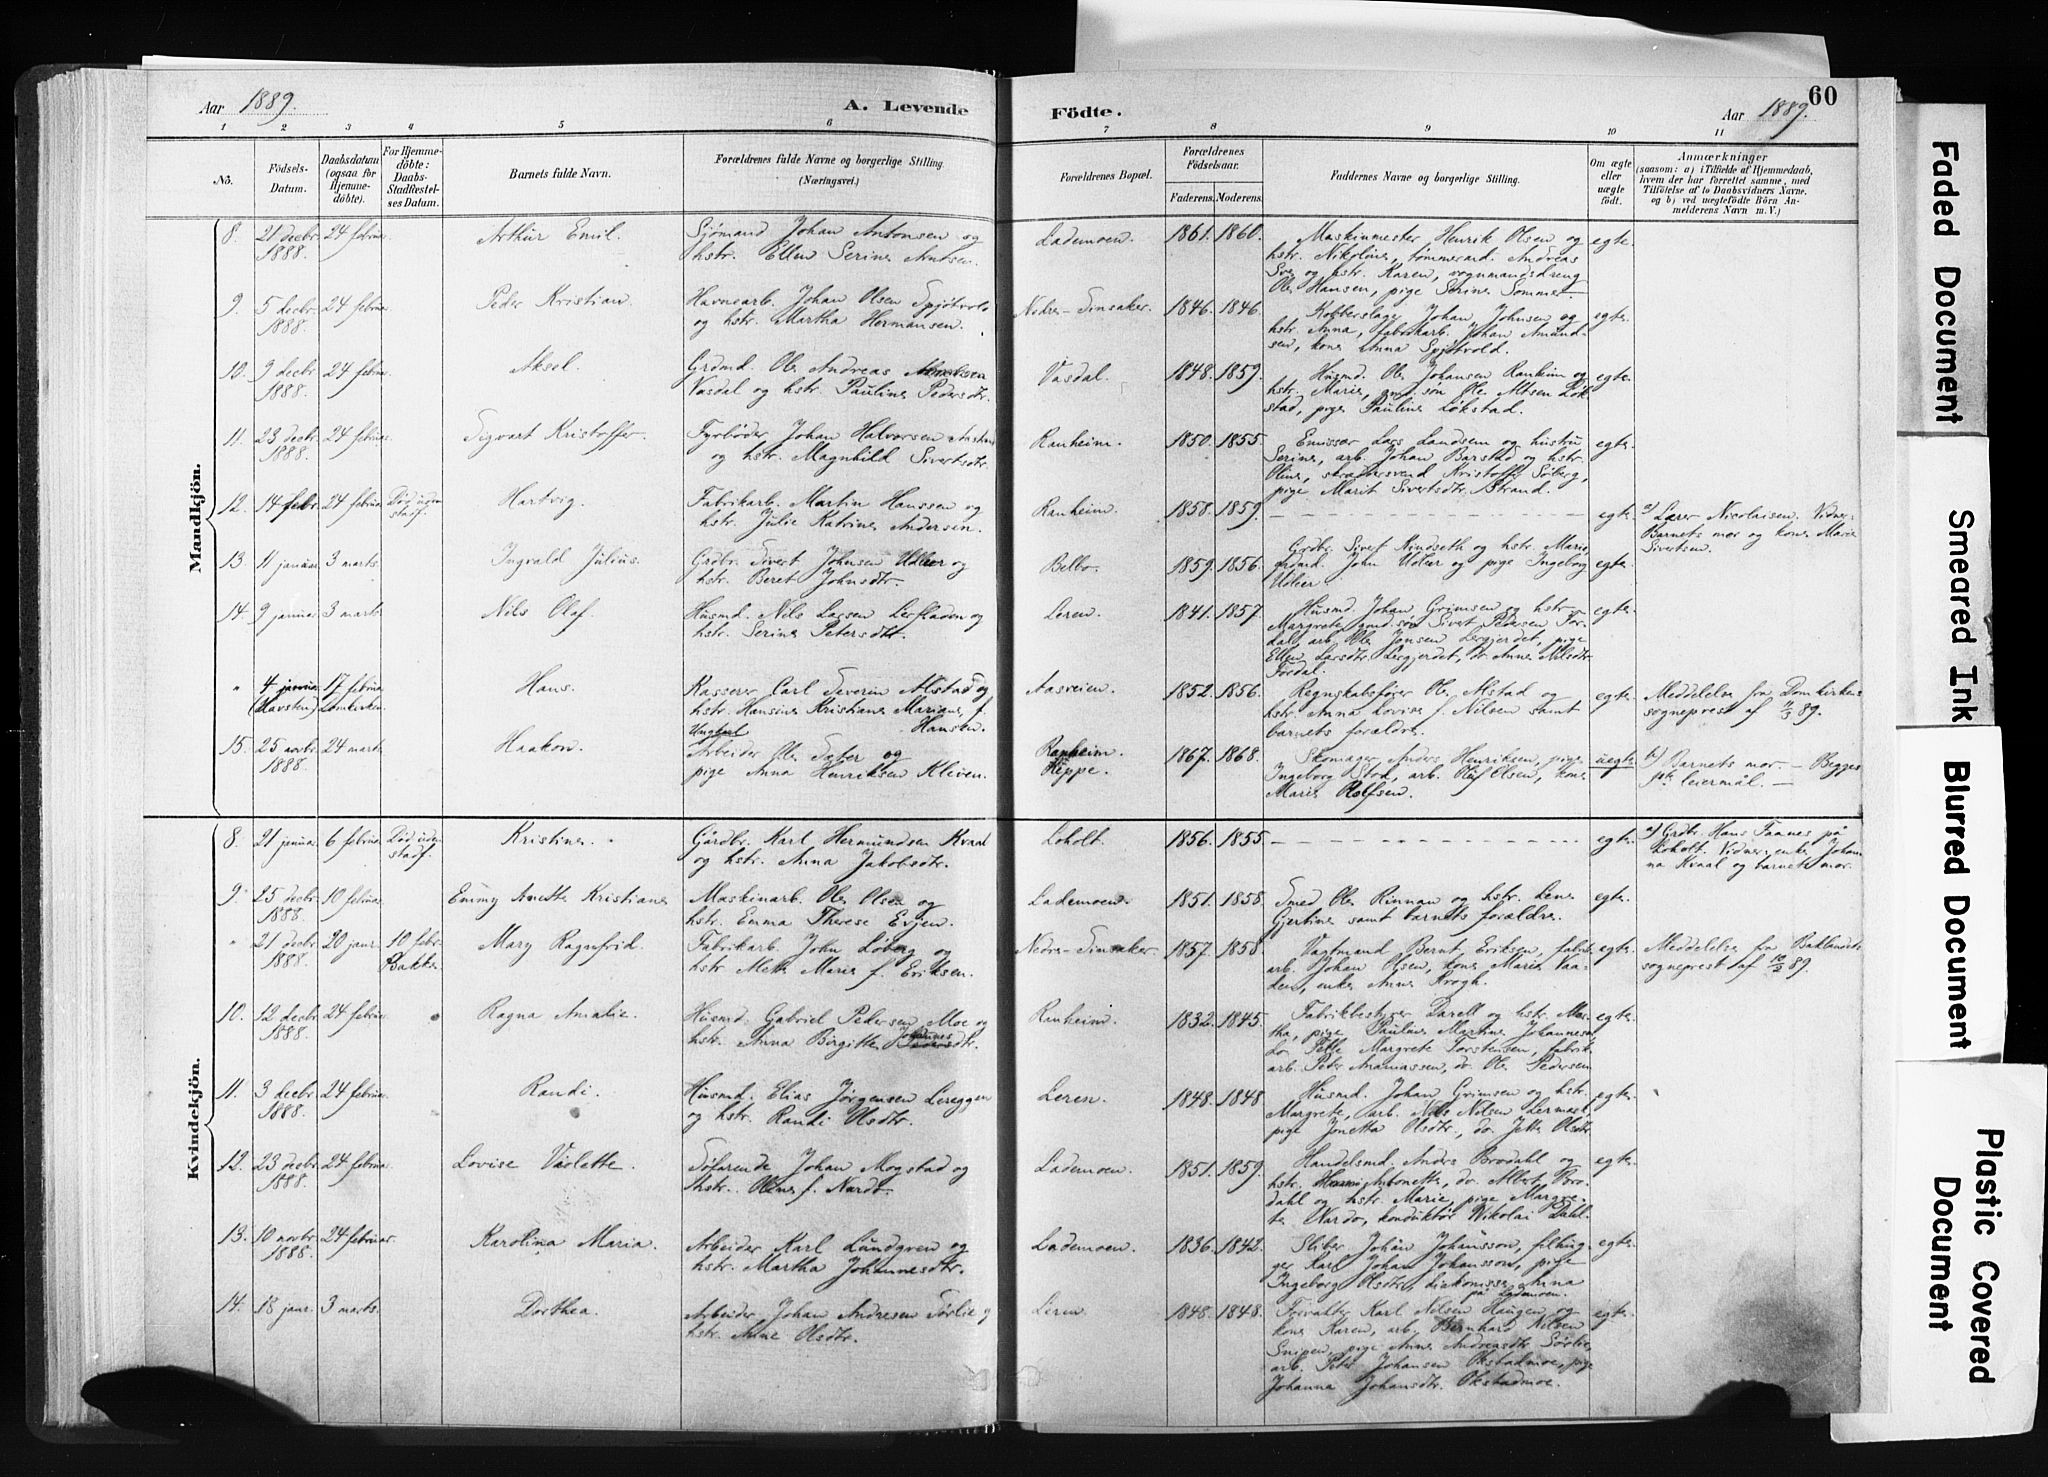 Aar 1889. A. Levende Födte. Aar 1889. 60
1 2 3 4 5 6 7 8 9 10 11
Nô. Födsels-Datum. Daabsdatum (ogsaa for Hjemme-döbte). For Hjemme-döbte: Daabs-Stadfæstel-ses Datum. Barnets fulde Navn. Forældrenes fulde Navne og borgerlige Stilling. (Næringsvei.) Forældrenes Bopæl. Forældrenes Födselsaar. Faderens. Moderens. Faddernes Navne og borgerlige Stilling. Om ægte eller uægte födt. Anmærkninger (saasom: a) i Tilfælde af Hjemmedaab, hvem der har forrettet samme, med Tilföielse af to Daabsvidners Navne, og b) ved uægtefödte Börn An-melderens Navn m. V.)
Mandkjön.
8. 21 decbr. 1888. 24 februar Arthur Emil. Sjømand Johan Antonsen og hstr. Ellen Serine Arntsen. Lademoen. 1861. 1860. Maskinmester Henrik Olsen og hstr. Nikoline, tømmermd. Andreas Sve og hstr. Karen, vognmandsdreng Ole Hansen, pige Serine Sommer. egte.
9. 5 decbr. 1888. 24 februar Peder Kristian. Havnearb. Johan Olsen Spjøtvold og hstr. Martha Hermansen. Nedre-Tinsaker. 1846. 1846. Kobberslager Johan Johnsen og hstr. Anna, fabrikarb. Johan Amundsen, kone Anna Spjøtvold. egte.
10. 9 decbr. 1888. 24 februar Aksel. Grdmd. Ole Andreas Vasdal og hstr. Pauline Pedersdtr. Vasdal. 1848. 1859. Husmd. Ole Johansen Ranheim og hstr. Marie, gmd. søn Ole Altsen Løkstad, pige Pauline Løkstad. egte.
11. 23 decbr. 1888. 24 februar. Sigvart Kristoffer. Fyrbøder Johan Halvorsen og hstr. Magnhild Sivertsdtr. Ranheim. 1850. 1855. Emissær Lars Landsem og hustru Serine, arb. Johan Barstad og hstr. Oline, skræddersvend Kristoffer Søberg, pige Marit Sivertsdtr. Strand. egte.
12. 14 febr. 24 februar Død uden stadf. Hartvig. Fabrikarb. Martin Hanssen og hstr. Julie Katrine Andersen. Ranheim. 1858. 1859. egte. a) Lærer Nicolaisen. Vidner: Barnets mor og kone Marie Sivertsen.
13 11 januar 3 marts. Ingvald Julius. Grdbr. Sivert Johnsen Udleer og hstr. Beret Johnsdtr. Belbo. 1859. 1856. Grdbr. Sivert Kindseth og hstr. Marie, grdmd. John Udleer og pige Ingeborg Udleer. egte.
14. 9 januar 3 marts. Nils Olaf. Husmd. Nils Larsen Lerfladen og hstr. Serine Petersdtt. Leren. 1841. 1857. Husmd. Johan Grimsen og hstr. Margrete, gmd. søn Sivert Pedersen Fordal, arb. Ole Jonsen Lergjerdet, pige Ellen Larsdtr. Lergjerdet, do. Anne Nilsdtr. Fordal. egte.
" 4 januar (Havsten) 17 februar Domkirken. Hans. Kasserer Carl Severin Alstad og hstr. Hansine Kristiane Mariane, f. Hansen. Aasveien. 1852. 1856. Regnskabsfører Ole Alstad og hstr. Anna Lovise f. Nilsen samt barnets forældre. egte. Meddelelse fra Domkirkens sogneprest af 11/3 89.
15. 25 novbr. 1888. 24 marts. Haakon. Ungkarl Arbeider Ole Sæter og pige Anna Henriksen Kleven. Ranheim. Reppe. 1867. 1868. Skomager Anders Henriksen, pige Ingeborg Stod, arb. Oluf Olsen, kone Marie Olufsen. uegte. b) Barnets mor. – Begges 1ste leiermål. –
Kvindekjön.
8. 21 januar 6 februar Død uden stadf. Kristine. Gårdbr. Karl Hermundsen Kvaal og hstr. Anna Jakobsdtr. Loholt. 1856. 1855. egte. a) Grdbr. Hans Faanes på Loholt. Vidner: enke Johanna Kvaal og barnets mor.
9. 25 decbr. 1888. 10 februar. Emmy Anette Kristiane Maskinarb. Ole Olsen og hstr. Emma Therese Evjen. Lademoen. 1851. 1858. Smed Ole Rinnan og hstr. Lene Gjertine samt barnets forældre. egte.
" 21 decbr. 1888. 20 janr. 10 febr. Bakke. Mary Ragnfrid. Fabrikarb. John Løberg og hstr. Mette Marie f. Eriksen. Nedre-Tinsaker. 1857. 1858. Vagtmand Bernt Eriksen, fabrikarb. Johan Olsen, kone Marie Vaaden, enke Anne Krogh. egte. Meddelelse fra Baklandets sogneprest af 10/2 89.
10. 12 decbr. 1888. 24 februar. Ragna Amalie. Husmd. Gabriel Pedersen Moe og hstr. Anna Birgitte Johannesdtr. Ranheim. 1832. 1845. Fabrikbestyrer Darell og hstr. Martha, pige Pauline Martine Johannesen, do. Margrete Torstensen, fabrikarb. Peter, do. Ole Pedersen egte.
11. 3 decbr. 1888. 24 februar. Randi. Husmd. Elias Jørgensen Lereggen og hstr. Randi Olsdtr. Leren. 1848. 1848. Husmd. Johan Grimsen og hstr. Margrete, arb. Nils Nilsen Lermark, pige Jonetta Olsdtr., do. Jette Olsdtr. egte.
12. 23 decbr. 1888. 24 februar. Lovise Violette. Søfarende Johan Mogstad og hstr. Oline f. Nardo. Lademoen. 1851. 1859. Handelsmd. Anders Brodahl og hstr. Antonette, do. Albert Brodahl og hstr. Marie, pige Margrete Nardo, konduktør Nikolai Dahl. egte.
13. 10 novbr. 1888. 24 februar. Karolina Maria. Arbeider Karl Lundgren og hstr. Martha Johannesdtr. Lademoen. 1836. 1842. Sliber Johan Johansson, filhugger Karl Johan Johansson, pige Ingeborg Olsdtr, diakonisse Anna på Lademoen. egte.
14. 18 janr. 3 marts. Dorthea. Arbeider Johan Andresen Sørlie og hstr. Anne Olsdtr. Leren. 1848. 1848. Forvalter Karl Nilsen Haugen og kone Karen, arb. Bernhard Nilsen Snipen, pige Anne Andreasdtr Sørlie, arb. Peter Johansen Okstadmoe, pige Johanna Johansdtr. Okstadmoe. egte.
Faded Document
Smeared Ink
Blurred Document
Plastic Covered Document